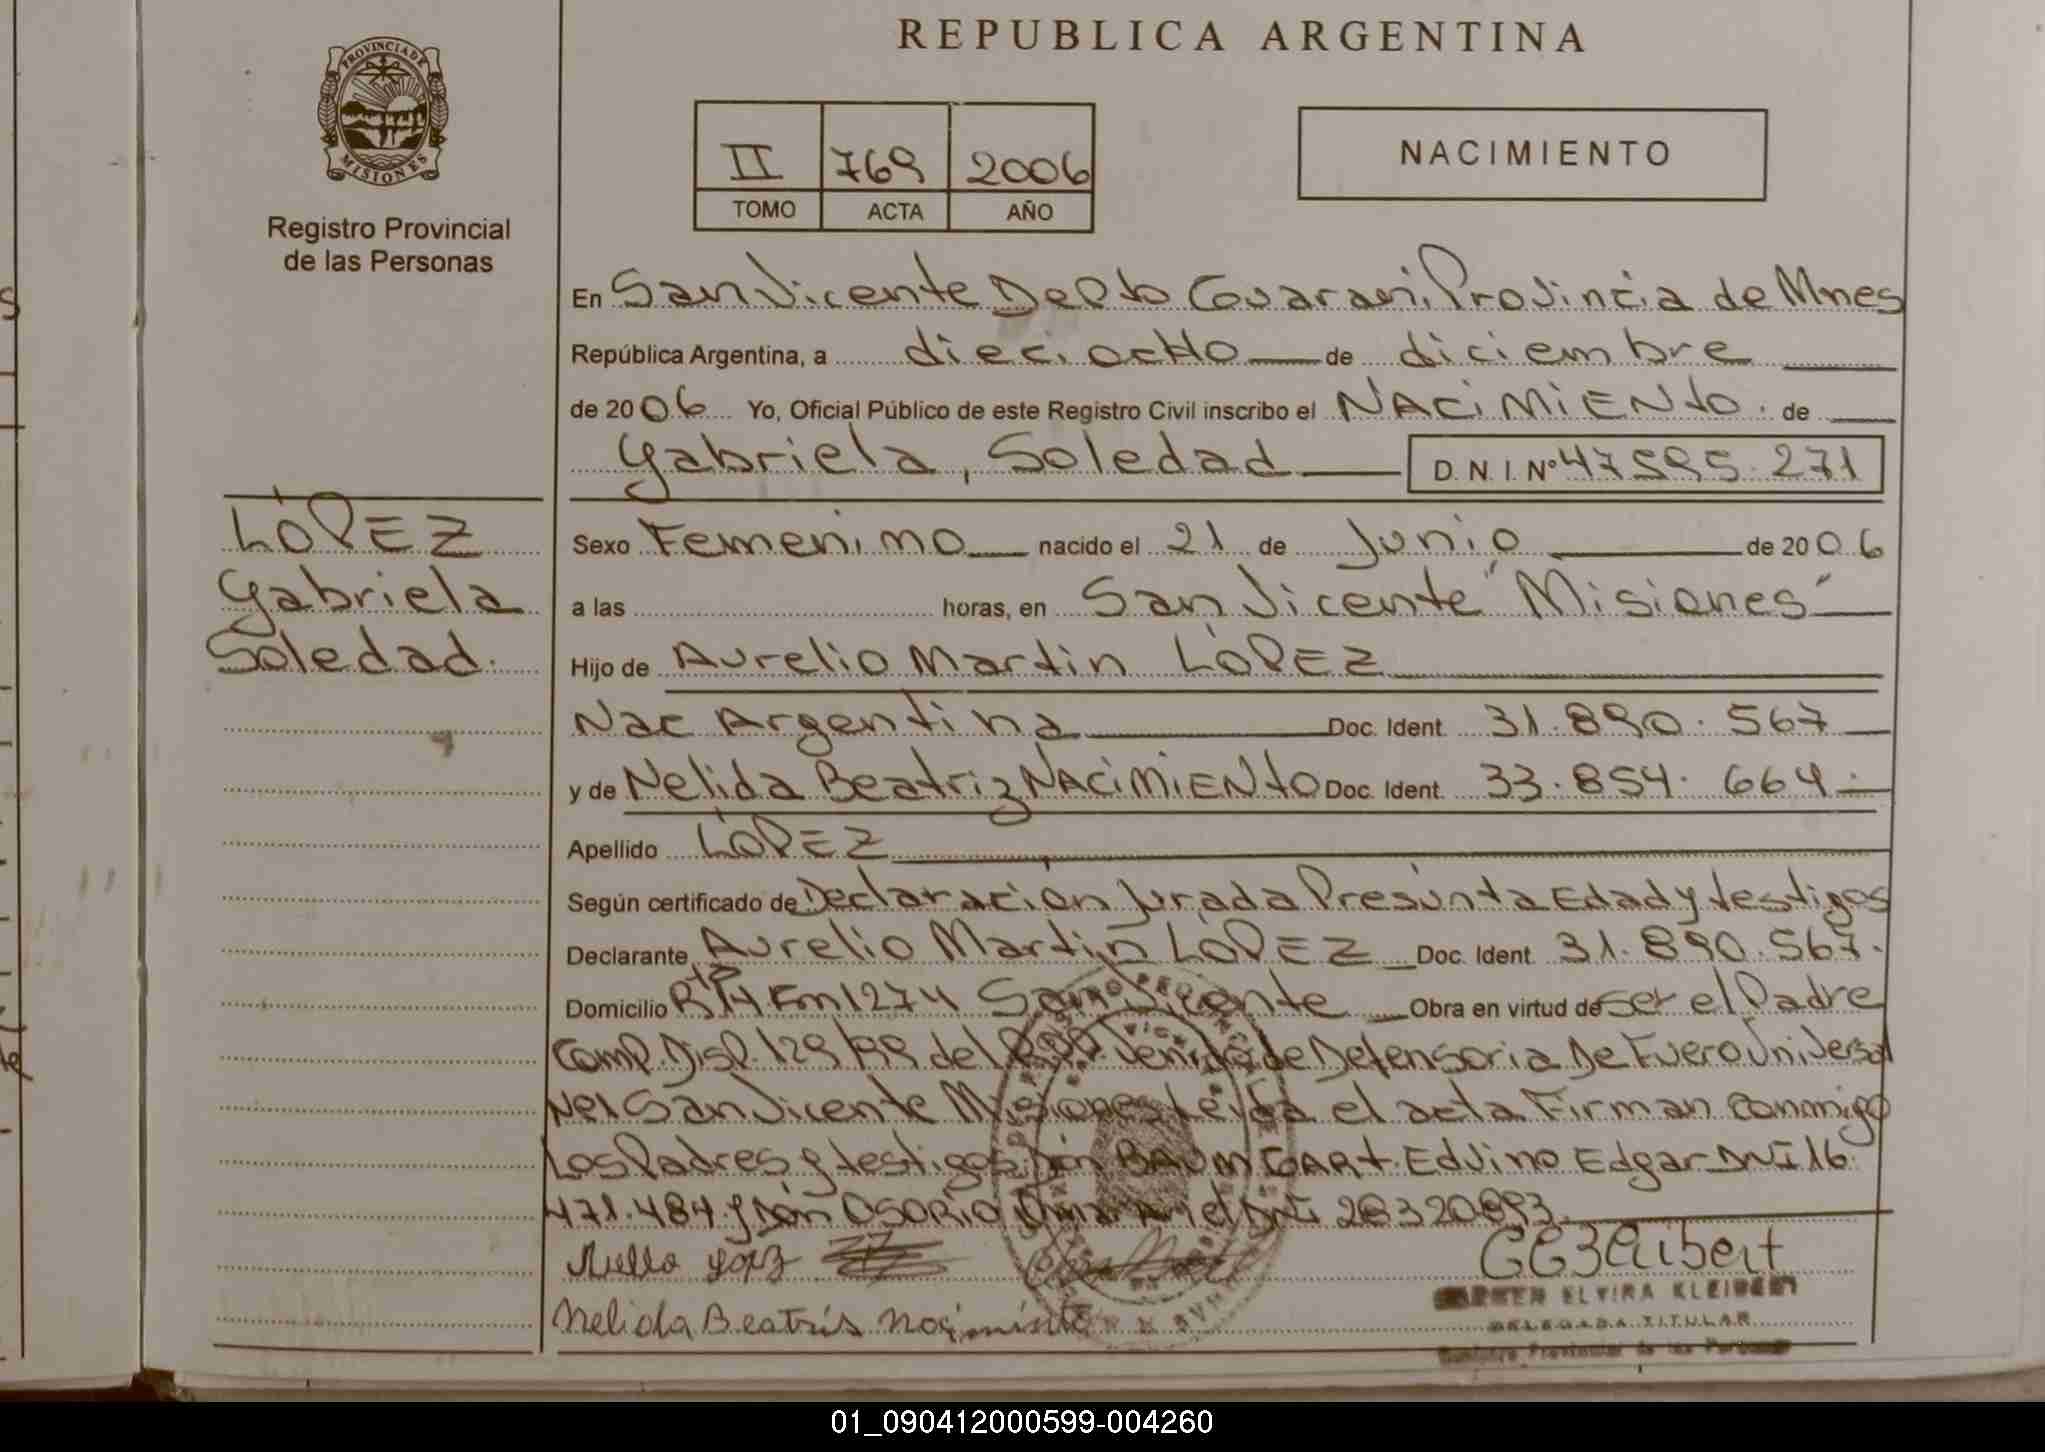 REPUBLICA ARGENTINA
PROVINCIA DE
MISIONES
Registro Provincial
de las Personas
II 769 2006
TOMO ACTA AÑO
NACIMIENTO
En San Vicente Depto Guarani, Provincia de Mnes
República Argentina, a dieciocho de diciembre
de 2006 Yo, Oficial Público de este Registro Civil inscribo el NACIMIENTO. de
Gabriela, Soledad D. N. I. Nº 47595.271
LÓPEZ
Gabriela
Soledad.
Sexo Femenino nacido el 21 de Junio de 2006
a las horas, en San Vicente "Misiones"
Hijo de Aurelio Martin LÓPEZ
Nac Argentina Doc. Ident. 31.890.567
y de Nelida Beatriz NACIMIENTO Doc. Ident. 33.854.664.
Apellido LÓPEZ
Según certificado de Declaración Jurada Presunta Edad y testigos
Declarante Aurelio Martin LÓPEZ Doc. Ident. 31.890.567.
Domicilio Rta 14 Km 1274 San Vicente Obra en virtud de ser el Padre
Comp. Disp. 129/99 del venido de Defensoria De Fuero Universal
Nº1 San Vicente Misiones Leida el acta Firman conmigo
Los Padres y testigos Don BAUMGART. Edvino Edgar DNI 16.
471.484 y Don OSORIO Omar Ariel DNI 28320893
Nelida Beatris Nacimiento
ELVIRA KLEIBERT
DELEGADA TITULAR
Registro Provincial de las Personas
01_090412000599-004260